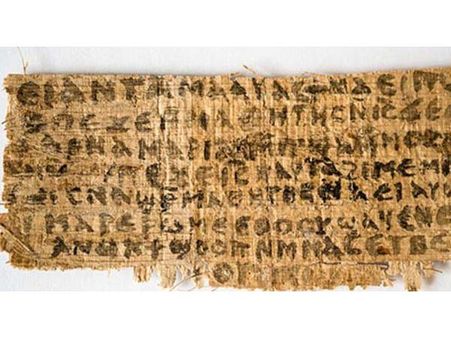 ⲉⲓ ⲁⲛ ⲧⲁⲙⲁⲁⲩ ⲁⲥϯ ⲛⲁⲉⲓ
ⲡⲉϫⲉ ⲙⲙⲁⲑⲏⲧⲏⲥ ⲛⲓⲥ ϫⲉ
ⲁⲣⲛⲁ ⲙⲁⲣⲓⲁⲙ ⲙⲡϣⲁ ⲙⲙⲟⲥ
ⲡⲉϫⲉ ⲓⲥ ⲛⲁⲩ ⲧⲁϩⲓⲙⲉ ⲙⲛ
ⲥⲛⲁϣⲣ ⲙⲁⲑⲏⲧⲏⲥ ⲛⲁⲉⲓ ⲁⲩⲱ
ⲙⲁⲣⲉ ⲣⲱⲙⲉ ⲉⲑⲟⲟⲩ ϣⲁϥⲉ ⲛⲉ
ⲁⲛⲟⲕ ϯϣⲟⲟⲡ ⲛⲙⲙⲁⲥ ⲉⲧⲃⲉ